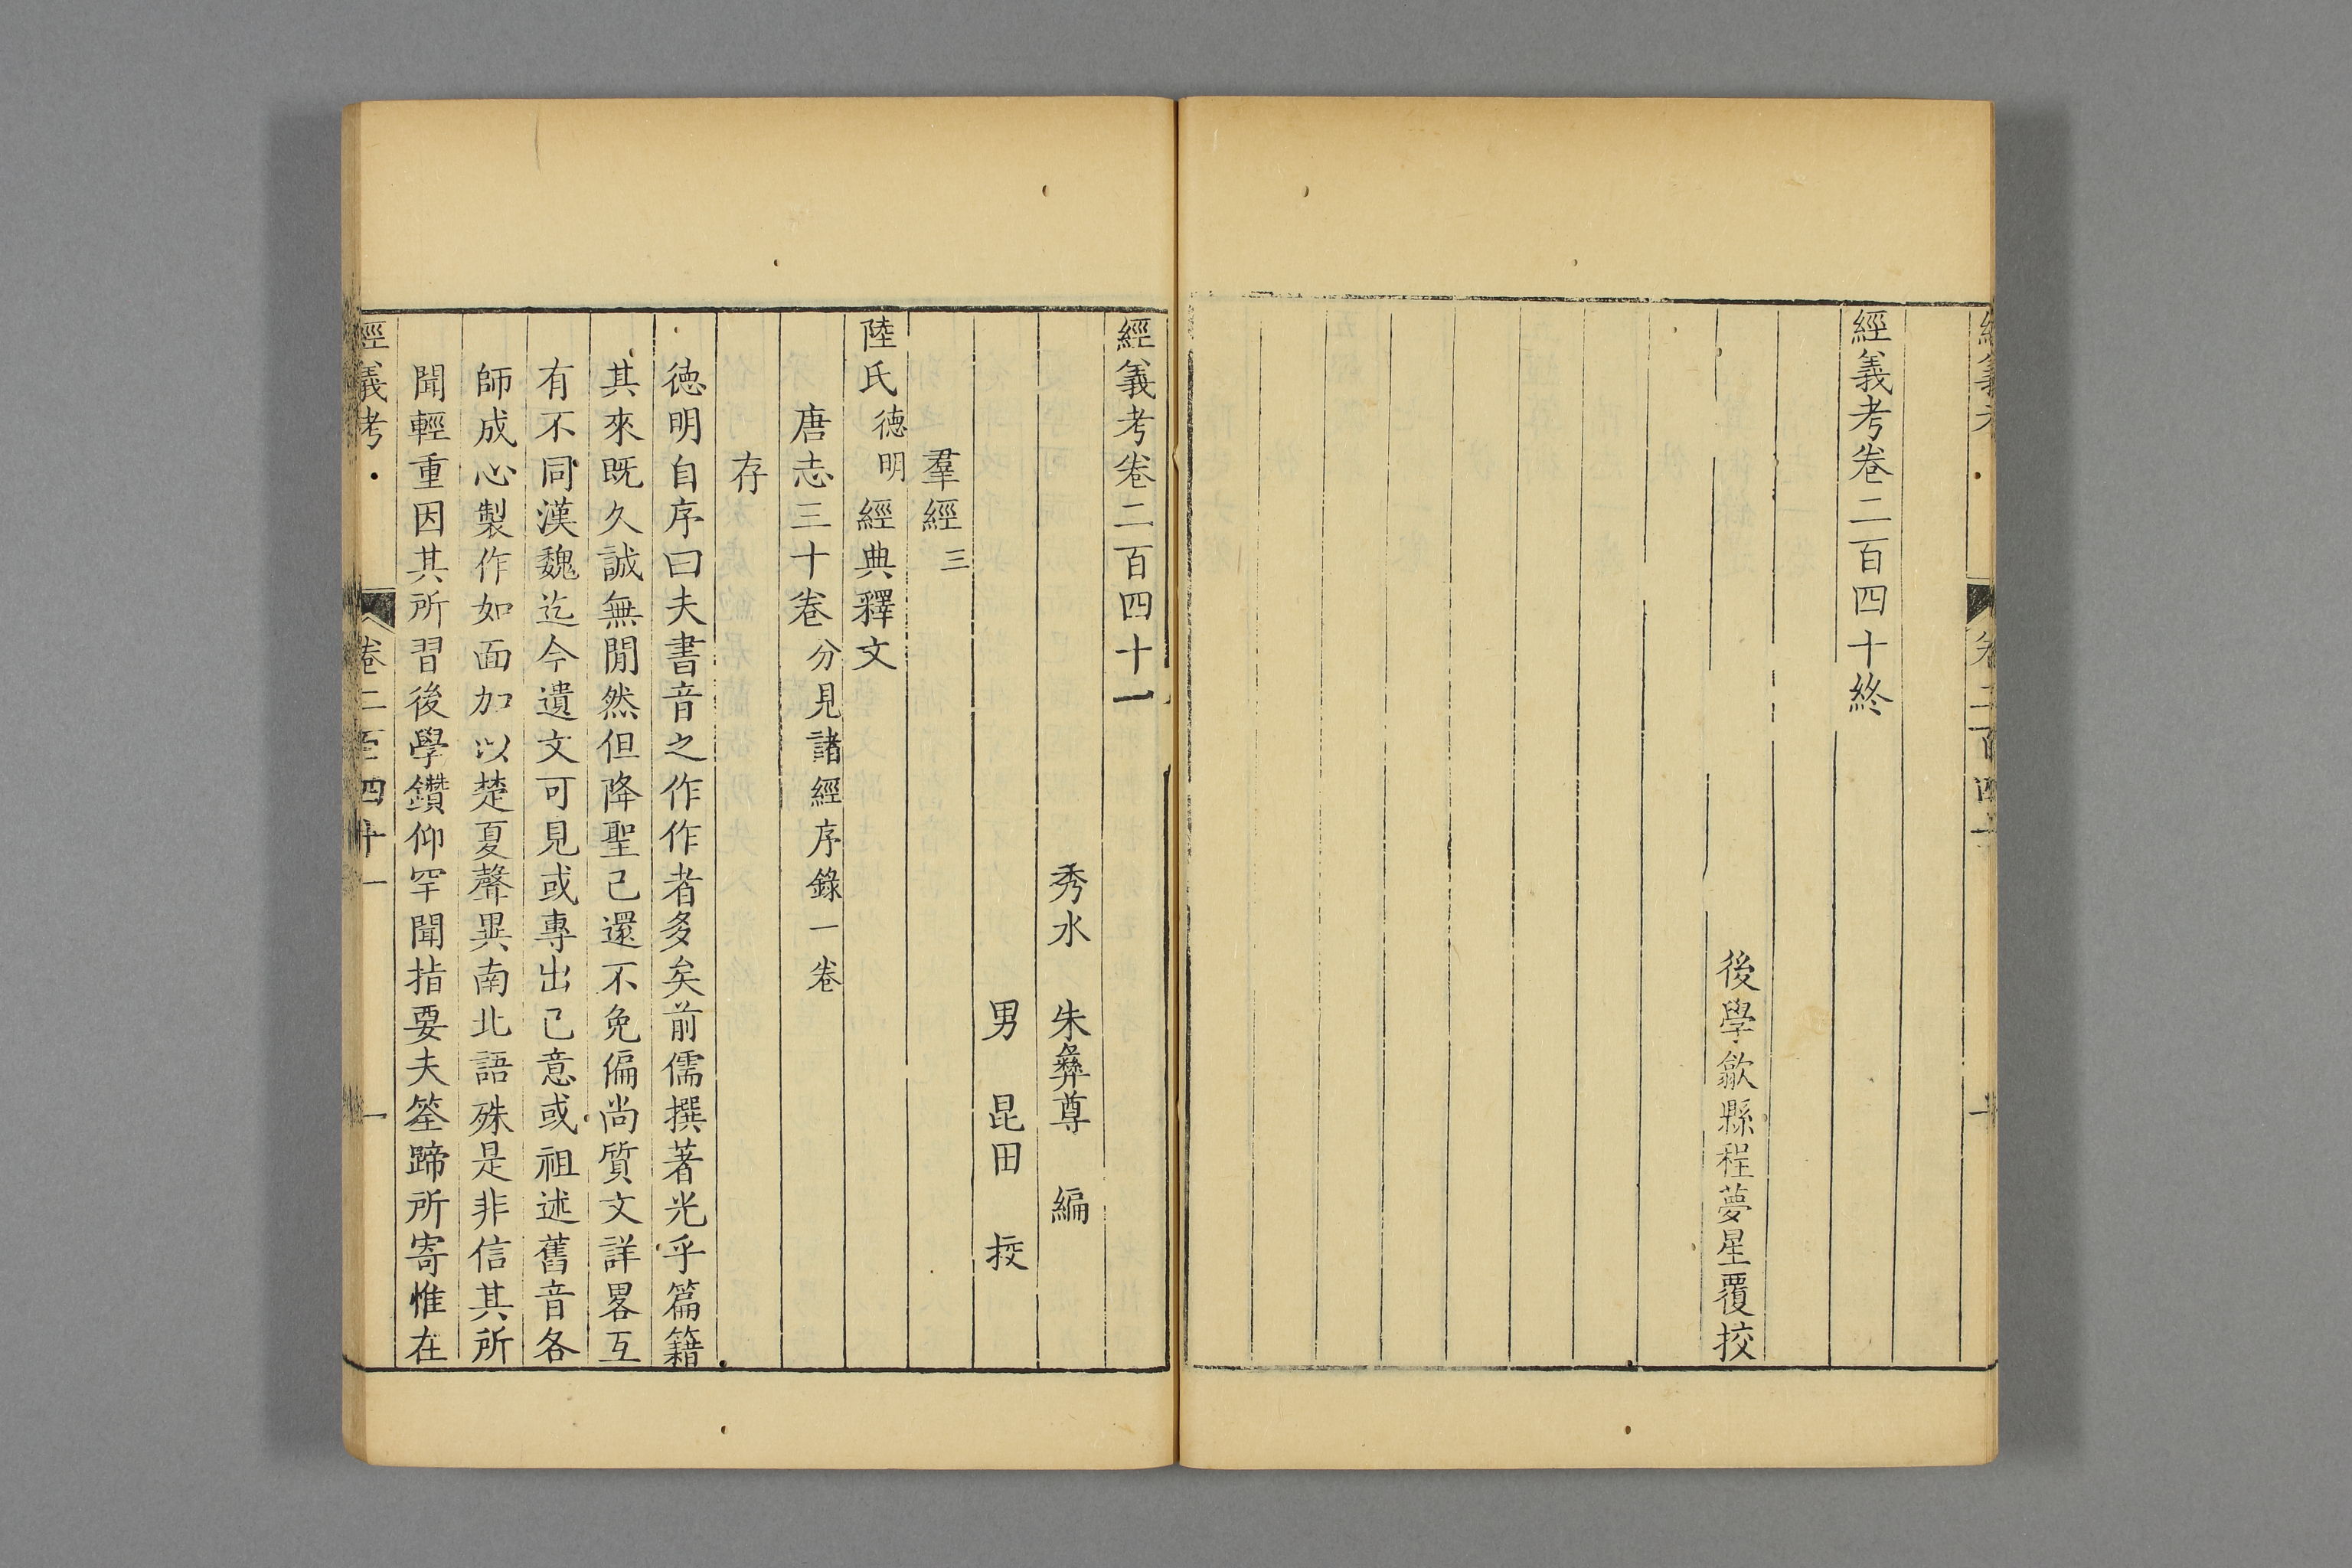 經義考卷二百四十終
後學歙縣程夢星覆挍
經義考卷二百四十一
秀水　朱彝尊　編
男　昆田　挍
羣經三
陸氏德明經典釋文
唐志三十卷分見諸經序錄一卷
存
德明自序曰夫書音之作作者多矣前儒撰著光乎篇籍
其來既久誠無閒然但降聖已還不免偏尚質文詳畧互
有不同漢魏迄今遺文可見或專出己意或祖述舊音各
師成心製作如面加以楚夏聲異南北語殊是非信其所
聞輕重因其所習後學鑽仰罕聞指要夫筌蹄所寄惟在
經義考　卷二百四十一　一